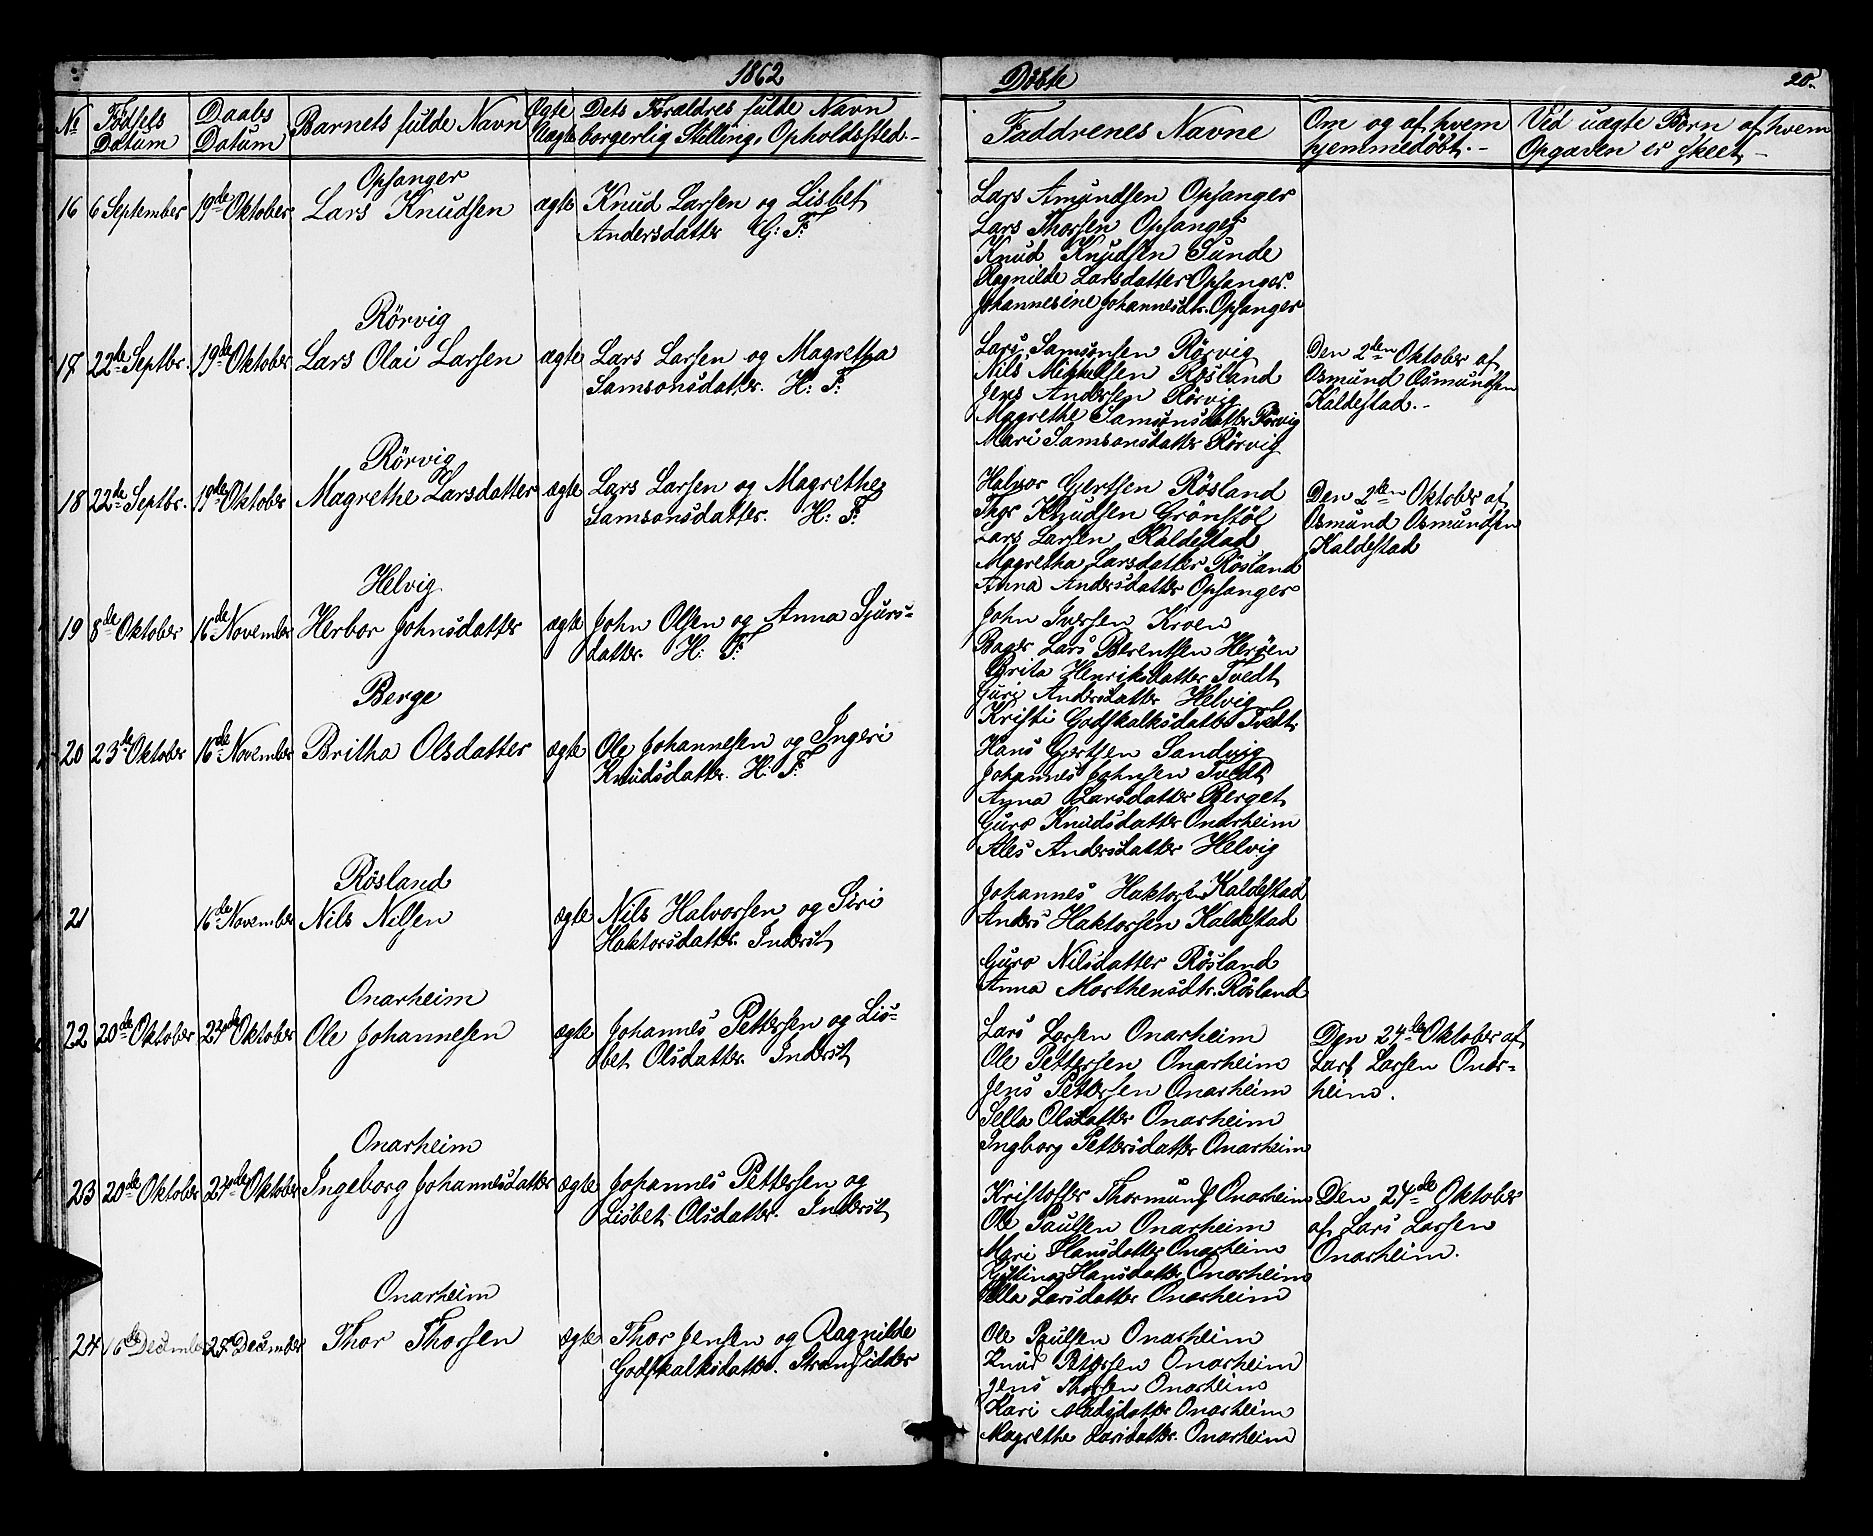 1862
Döbte
20.
No
Födsels Datum
Daabs Datum
Barnets fulde Navn
Ægte Uægte
Dets Forældres fulde Navn borgerlig Stelling, Opholdssted
Faddrenes Navne
Om og af hvem hjemmedöbt.
Ved uægte Börn af hvem Opgaven er skeet
Opsanger
16 6 September 19de Oktober Lars Knudsen ægte Knud Larsen og Lisbet
Andersdatter G: F:
Lars Amundsen Opsanger
Lars Thorsen Opsanger
Knud Knudsen Sunde
Ragnilde Larsdatter Opsanger.
Johannesine Johannesdtr. Opsanger
Rörvig
17 22de Septbr. 19de Oktober Lars Olai Larsen ægte Lars Larsen og Magretha
Samsonsdatter. H: F:
Lars Samsonsen Rörvig
Nils Mikkelsen Rösland
Jens Andersen Rörvig
Magrethe Samsonsdatter Rörvig
Mari Samsonsdatter Rörvig
Den 2den Oktober af
Osmund Osmundsen
Kaldestad.
Rörvig
18 22de Septbr. 19de Oktober Magrethe Larsdatter ægte Lars Larsen og Magrethe
Samsonsdatter. H: F:
Halvor Gertsen Rösland
Knudsen Grönstöl
Lars Larsen Kaldestad
Magretha Larsdatter Rösland
Anna Andersdatter Opsanger
Den 2den Oktober af
Osmund Osmundsen
Kaldestad
Helvig
19 8de Oktober 16de November Herbor Johnsdatter ægte John Olsen og Anna Sjurs-
datter. H: F:
John Iversen Kroen
Lars Berentsen Heröen
Brita Henriksdatter Tvedt
Guri Andersdatter Helvig
Kristi Godskalksdatter Tvedt
Berge
20 23de Oktober 16de November Britha Olsdatter ægte Ole Johannesen og Ingeri
Knudsdatter. H: F:
Hans Gertsen Sandvig
Johannes Johnsen Tvedt
Anna Larsdatter Berget
Guro Knudsdatter Onarheim
Ales Andersdatter Helvig
Rösland
21 16de November Nils Nilsen ægte Nils Halvorsen og Siri
Haktorsdatter. Inderst
Johannes Haktorsen Kaldestad
Anders Haktorsen Kaldestad
Guro Nilsdatter Rösland
Anna Morthensdtr. Rösland
Onarheim
22 20de Oktober 24de Oktober Ole Johannesen ægte Johannes Pettersen og Lis-
bet Olsdatter. Inderst
Lars Larsen Onarheim
Ole Pettersen Onarheim
Jens Pettersen Onarheim
Sella Olsdatter Onarheim
Ingborg Pettersdatter Onarheim
Den 24de Oktober af
Lars Larsen Onar-
heim.
Onarheim
23 20de Oktober 24de Oktober Ingeborg Johannesdatter ægte Johannes Pettersen og
Lisbet Olsdatter. Inderst
Kristoffer Onarheim
Ole Paulsen Onarheim
Mari Hansdatter Onarheim
Hansdatter Onarheim
Sella Larsdatter Onarheim
Den 24de Oktober
af Lars Larsen
Onarheim.
Onarheim
24 16de December December Thor Thorsen ægte Thor Jensen og Ragnilde
Godskalksdatter. Strandsidder
Ole Paulsen Onarheim
Knud Petersen Onarheim
Jens Thorsen Onarheim
Kari Madsdatter Onarheim
Magrethe Larsdatter. Onarheim